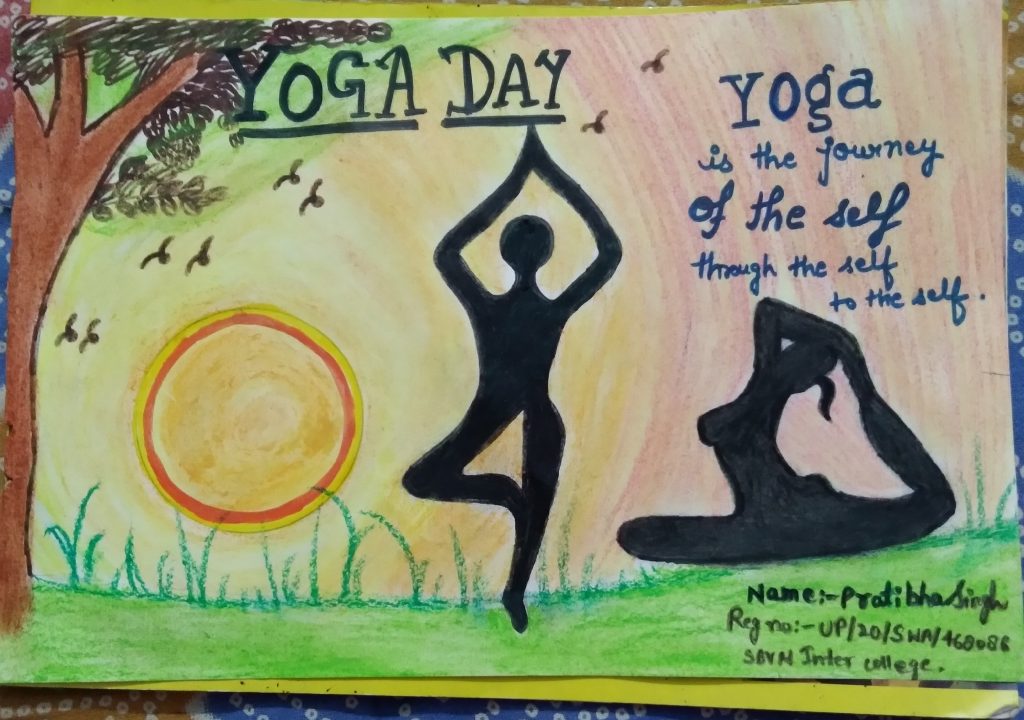 YOGA DAY
Yoga
is the journey
of the self
through the self
to the self.
Name:- Pratibha Singh
Reg no:- UP/20/SWA/460086
SBVM Inter college.